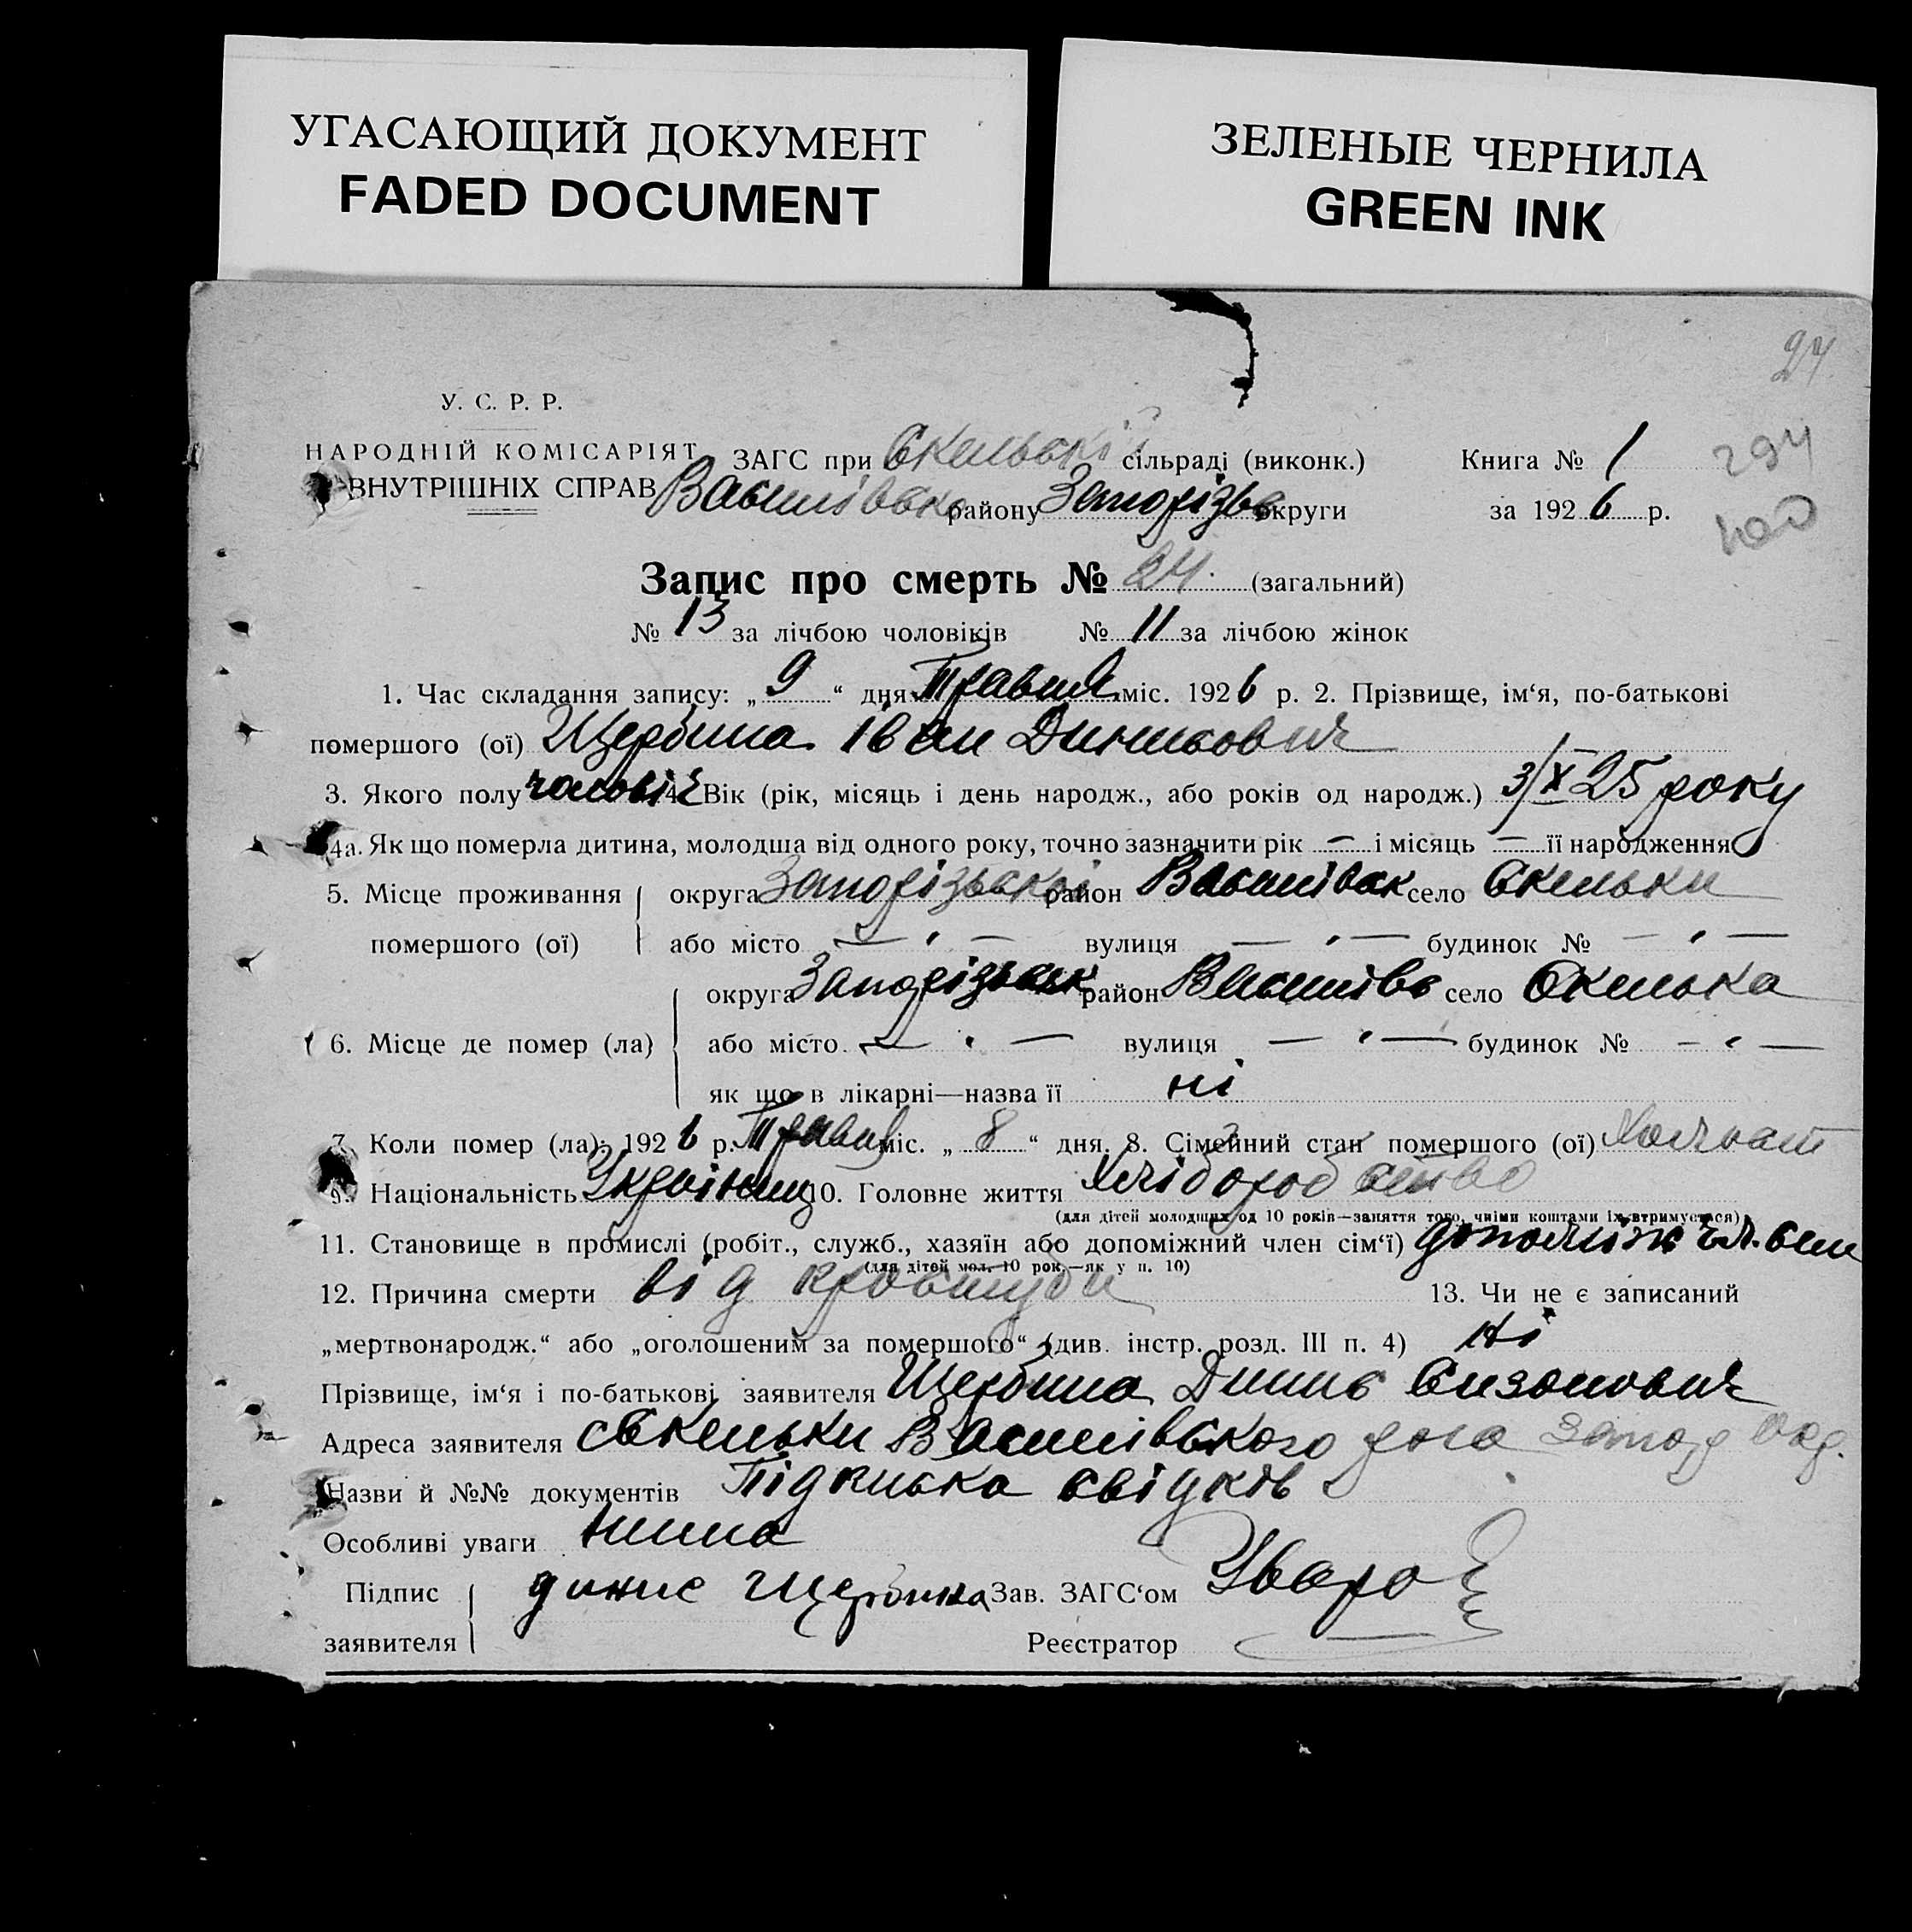 УГАСАЮЩИЙ ДОКУМЕНТ
FADED DOCUMENT
ЗЕЛЕНЫЕ ЧЕРНИЛА
GREEN INK
24
У. С. Р. Р.
НАРОДНІЙ КОМІСАРІЯТ
ВНУТРІШНІХ СПРАВ
ЗАГС при Скельській сільраді (виконк.) Книга № 1
294
Василівськ району Запорізьк округи за 1926 р.
Запис про смерть № 24. (загальний)
№ 13 за лічбою чоловіків № 11 за лічбою жінок
1. Час складання запису: „ 9 “ дня Травня міс. 1926 р. 2. Прізвище, ім‘я, по-батькові
помершого (ої) Щербина Іван Динисович
3. Якого полу чоловіч 4. Вік (рік, місяць і день народж., або років од народж.) 3/X 25 року
4а. Як що померла дитина, молодша від одного року, точно зазначити рік — і місяць — її народження
5. Місце проживання помершого (ої) округа Запорізської район Василівськ село Скельки
або місто — „ — вулиця — „ — будинок № — „ —
6. Місце де помер (ла) округа Запорізськ район Василівс село Скелька
або місто — „ — вулиця — „ — будинок № — „ —
як що в лікарні—назва її ні
7. Коли помер (ла): 1926 р. Травня міс. „ 8 “ дня. 8. Сімейний стан помершого (ої) Холост
9. Національність Українец 10. Головне життя Хліборобство
(для дітей молодших од 10 років—заняття того, чиїми коштами їх втримується)
11. Становище в промислі (робіт., служб., хазяїн або допоміжний член сім‘ї) допоміж чл. сем
(для дітей мол. 10 рок.—як у п. 10)
12. Причина смерти від 13. Чи не є записаний
„мертвонародж.“ або „оголошеним за помершого“ (див. інстр. розд. III п. 4) Ні
Прізвище, ім‘я і по-батькові заявителя Щербина Динис Сизонович
Адреса заявителя с Скельки Василівського р-на Запор Окр.
Назви й №№ документів Підписка свідків
Особливі уваги Нима
Підпис заявителя динис щербина Зав. ЗАГС‘ом Уваро
Реєстратор